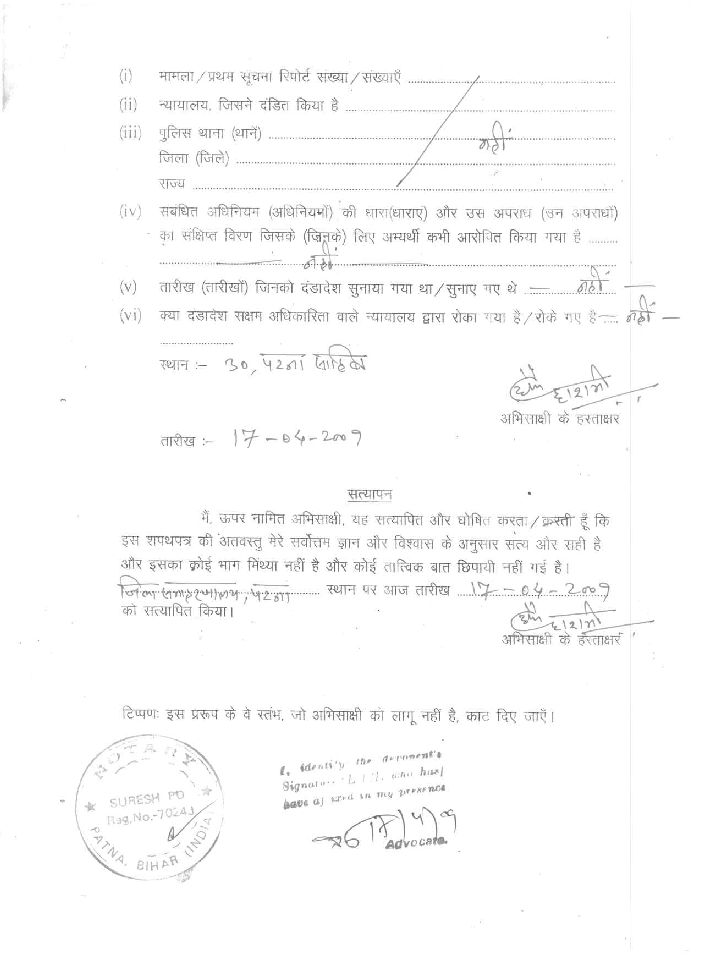 (i) मामला/प्रथम सूचना रिपोर्ट संख्या/संख्याएँ
(ii) न्यायालय, जिसने दंडित किया है
(iii) पुलिस थाना (थानें)
नहीं
जिला (जिले)
राज्य
(iv) संबंधित अधिनियम (अधिनियमों) की धारा(धाराएं) और उस अपराध (उन अपराधों)
का संक्षिप्त विरण जिसके (जिनके) लिए अभ्यर्थी कभी आरोपित किया गया है
नहीं
(v) तारीख (तारीखों) जिनको दंडादेश सुनाया गया था/सुनाए गए थे — नहीं —
(vi) क्या दंडादेश सक्षम अधिकारिता वाले न्यायालय द्वारा रोका गया है/रोके गए है — नहीं —
स्थान :- 30, पटना साहिब
अभिसाक्षी के हस्ताक्षर
तारीख :- 17-04-2009
सत्यापन
मैं, ऊपर नामित अभिसाक्षी, यह सत्यापित और घोषित करता/करती हूँ कि
इस शपथपत्र की अंतवस्तु मेरे सर्वोत्तम ज्ञान और विश्वास के अनुसार सत्य और सही है
और इसका कोई भाग मिथ्या नहीं है और कोई तात्विक बात छिपायी नहीं गई है।
जिला समाहरणालय, पटना स्थान पर आज तारीख 17-04-2009
को सत्यापित किया।
अभिसाक्षी के हस्ताक्षर
टिप्पणः इस प्ररूप के वे स्तंभ, जो अभिसाक्षी को लागू नहीं है, काट दिए जाएँ।
NOTARY
SURESH PD
Reg.No.-7024
PATNA, BIHAR (INDIA)
I, identify the deponent's
Signature who has/
have signed in my presence
17/4/09
Advocate